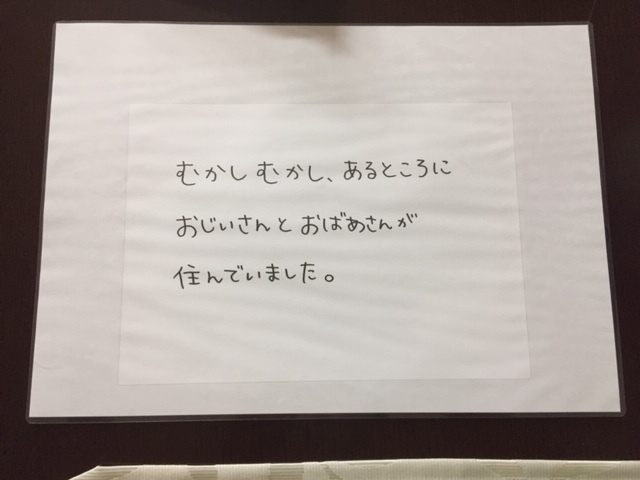 むかし むかし、あるところに
おじいさんと おばあさんが
住んでいました。